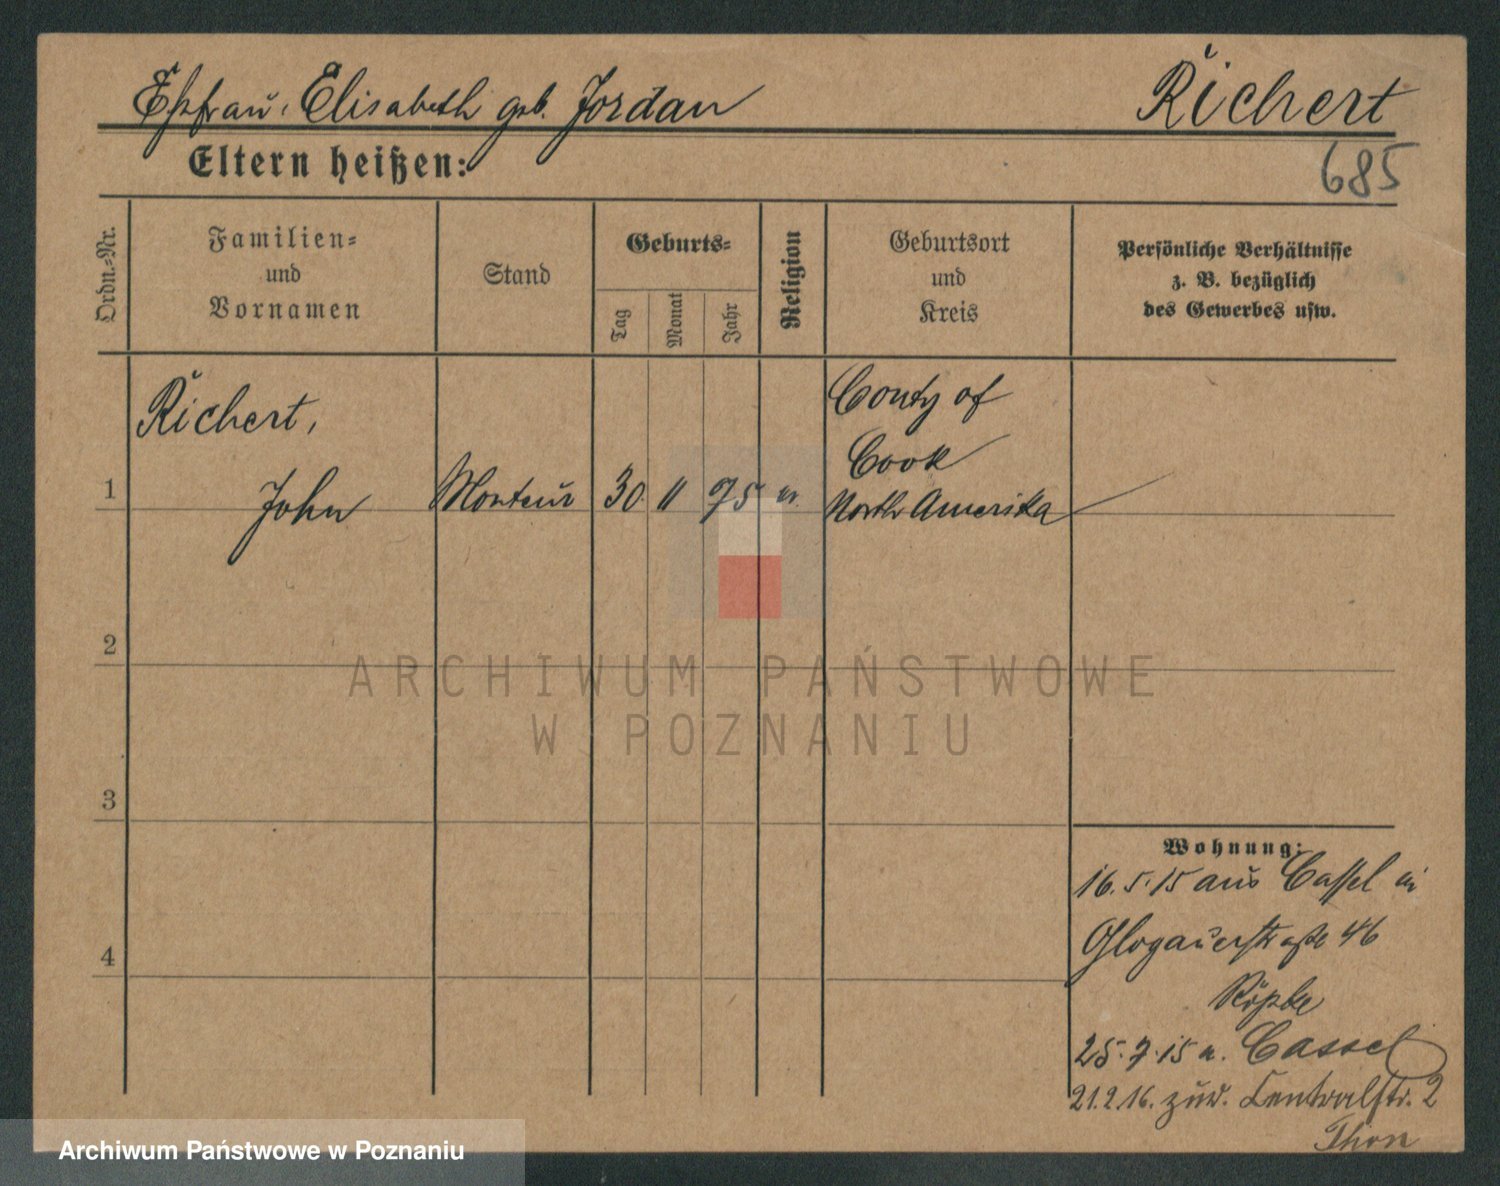 Ehefrau: Elisabeth geb. Jordan
Richert
685
Eltern heißen:
Ordn.-Nr.
Familien-
und
Vornamen
Stand
Geburts-
Tag
Monat
Jahr
Religion
Geburtsort
und
Kreis
Persönliche Verhältnisse
z. B. bezüglich
des Gewerbes usw.
Richert,
John
1
Monteur
30
11
75
County of
Cook
North Amerika
2
3
4
Wohnung:
16.5.15 aus Cassel in
Glogauerstraße 46
Röpke
25.7.15 n. Cassel
21.2.16. zur. Centralstr. 2
Thon
ARCHIWUM PAŃSTWOWE
W POZNANIU
Archiwum Państwowe w Poznaniu